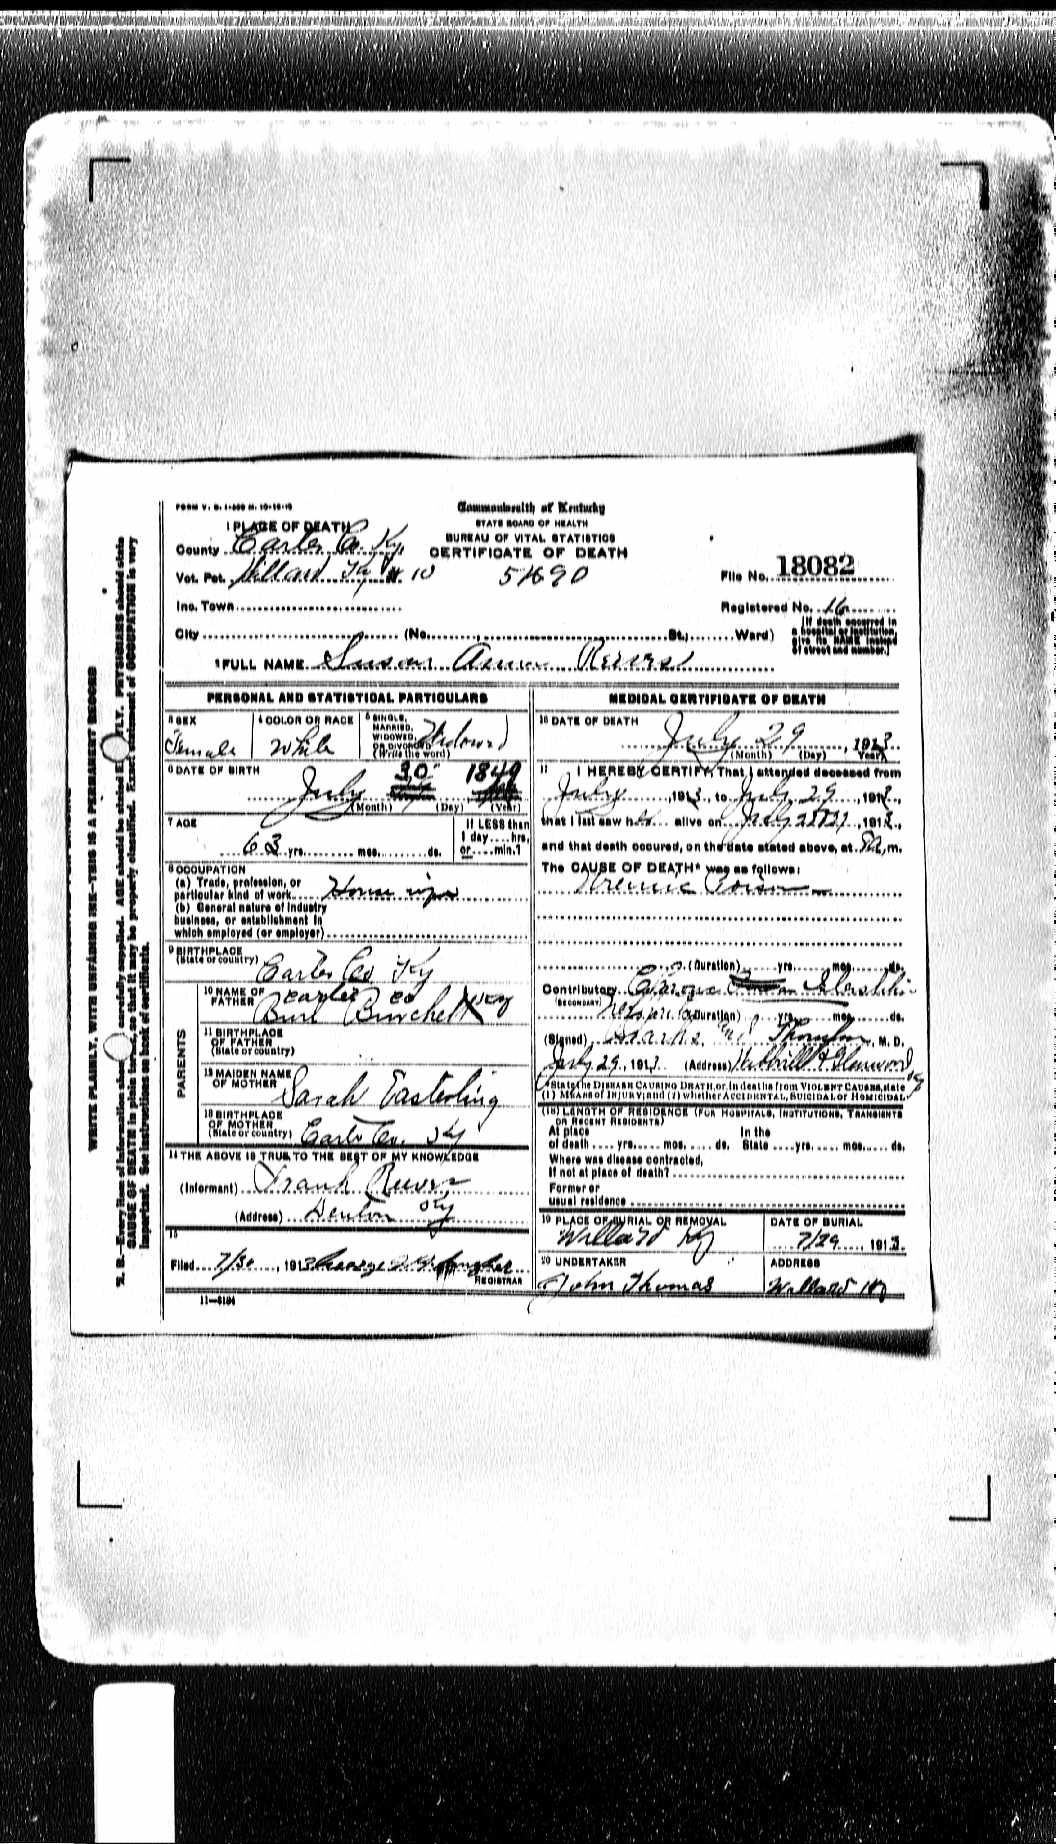 FORM V. S. 1
Commonwealth of Kentucky
STATE BOARD OF HEALTH
BUREAU OF VITAL STATISTICS
CERTIFICATE OF DEATH
1 PLACE OF DEATH
County Carter Co. Ky.
Vot. Pct. Willard Ky # 10
File No. 18082
Inc. Town
Registered No. 16
City (No. , St.; Ward)
[If death occurred in a hospital or institution, give its NAME instead of street and number.]
2 FULL NAME Susan Ann Reeves
PERSONAL AND STATISTICAL PARTICULARS
3 SEX Female
4 COLOR OR RACE White
5 SINGLE, MARRIED, WIDOWED, OR DIVORCED (Write the word) Widowed
6 DATE OF BIRTH
July 30 1849
(Month) (Day) (Year)
7 AGE
63 yrs. mos. ds.
If LESS than 1 day hrs. or min.?
8 OCCUPATION
(a) Trade, profession, or particular kind of work House wife
(b) General nature of industry
business, or establishment in
which employed (or employer)
9 BIRTHPLACE
(State or country) Carter Co Ky
PARENTS
10 NAME OF FATHER Burl Burchett
carter co Key
11 BIRTHPLACE OF FATHER
(State or country)
12 MAIDEN NAME OF MOTHER Sarah Easterling
13 BIRTHPLACE OF MOTHER
(State or country) Carter Co. Ky
14 THE ABOVE IS TRUE TO THE BEST OF MY KNOWLEDGE
(Informant) Frank Reeves
(Address) Denton Ky
15
Filed 7/30, 1913 George
REGISTRAR
11—3184
MEDICAL CERTIFICATE OF DEATH
16 DATE OF DEATH
July 29, 1913
(Month) (Day) Year)
17 I HEREBY CERTIFY, That I attended deceased from
July, 1913, to July 29, 1913,
that I last saw h alive on July 28, 1913,
and that death occured, on the date stated above, at m.
The CAUSE OF DEATH* was as follows:
Uremic Poison
(Duration) yrs. mos. ds.
Contributory
(SECONDARY)
(Duration) yrs. mos. ds.
(Signed) Thornton, M. D.
July 29, 1913 (Address)
*State the DISEASE CAUSING DEATH, or, in deaths from VIOLENT CAUSES, state
(1) MEANS OF INJURY; and (2) whether ACCIDENTAL, SUICIDAL or HOMICIDAL.
(18) LENGTH OF RESIDENCE (FOR HOSPITALS, INSTITUTIONS, TRANSIENTS
OR RECENT RESIDENTS)
At place of death yrs. mos. ds. In the State yrs. mos. ds.
Where was disease contracted,
If not at place of death?
Former or
usual residence
19 PLACE OF BURIAL OR REMOVAL
Willard Ky
DATE OF BURIAL
7/29, 1913.
20 UNDERTAKER
John Thomas
ADDRESS
Willard Ky
WRITE PLAINLY, WITH UNFADING INK—THIS IS A PERMANENT RECORD
N. B.—Every item of information should be carefully supplied. AGE should be stated EXACTLY. PHYSICIANS should state
CAUSE OF DEATH in plain terms, so that it may be properly classified. Exact statement of OCCUPATION is very
important. See instructions on back of certificate.